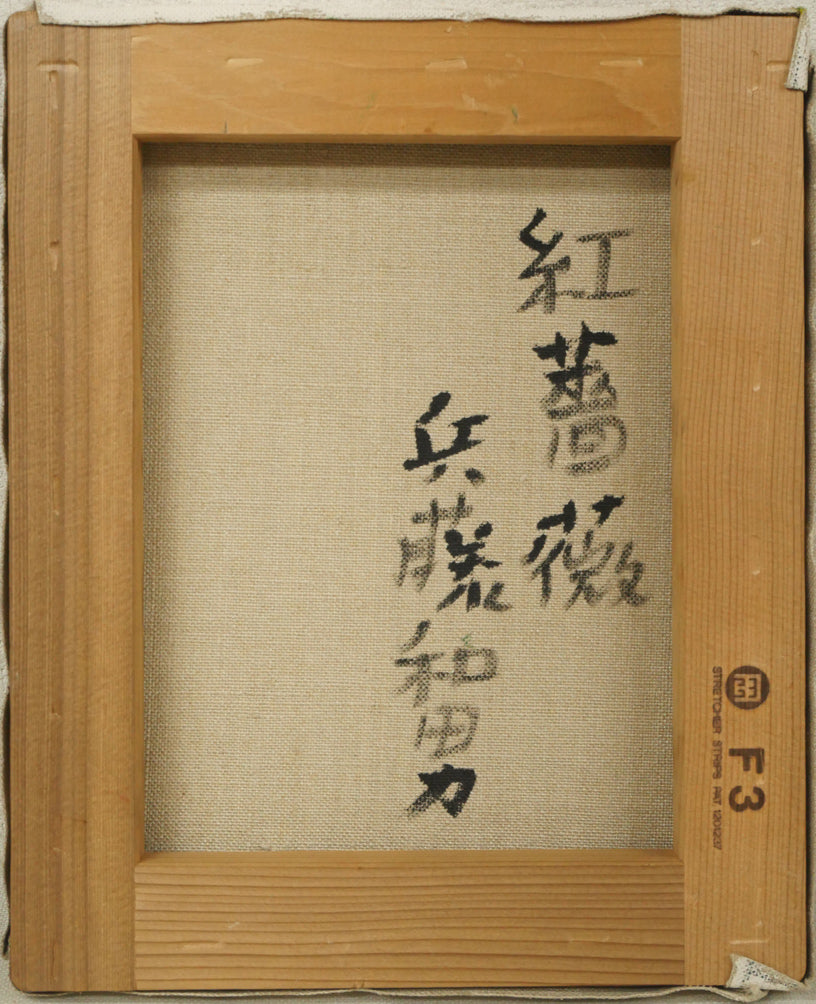 紅薔薇
兵藤和男
F3
STRETCHER STRIPS PAT 1201257